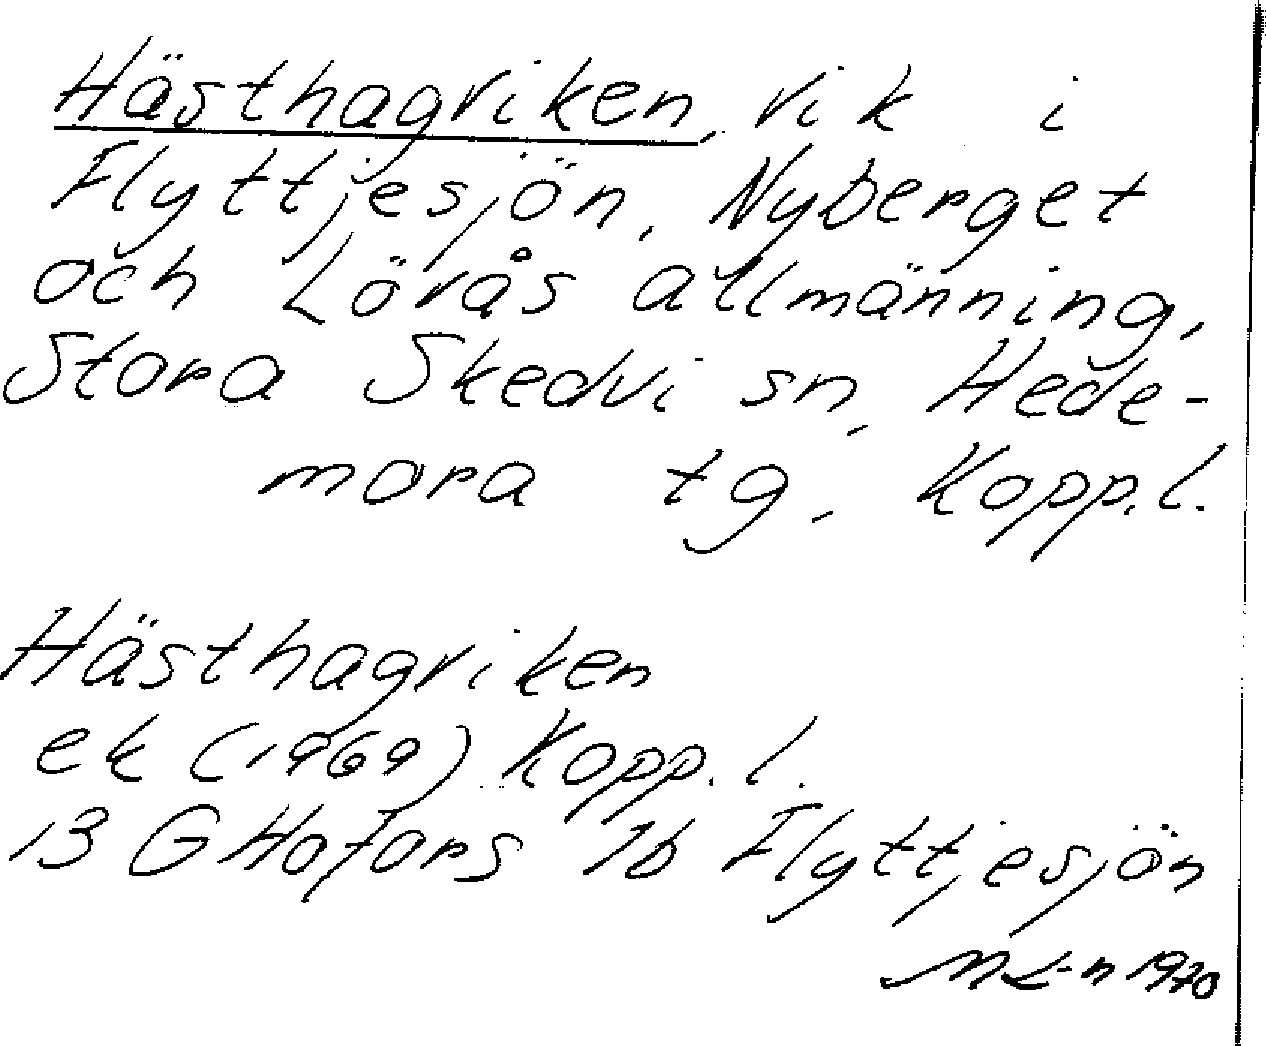 Hästhagviken, vik i
Flyttjesjön, Nyberget
och Lövås allmänning,
Stora Skedvi sn, Hede-
mora tg, Kopp.l.
Hästhagviken
ek (1969) Kopp.l.
13 G Hofors 1b Flyttjesjön
M L-n 1970